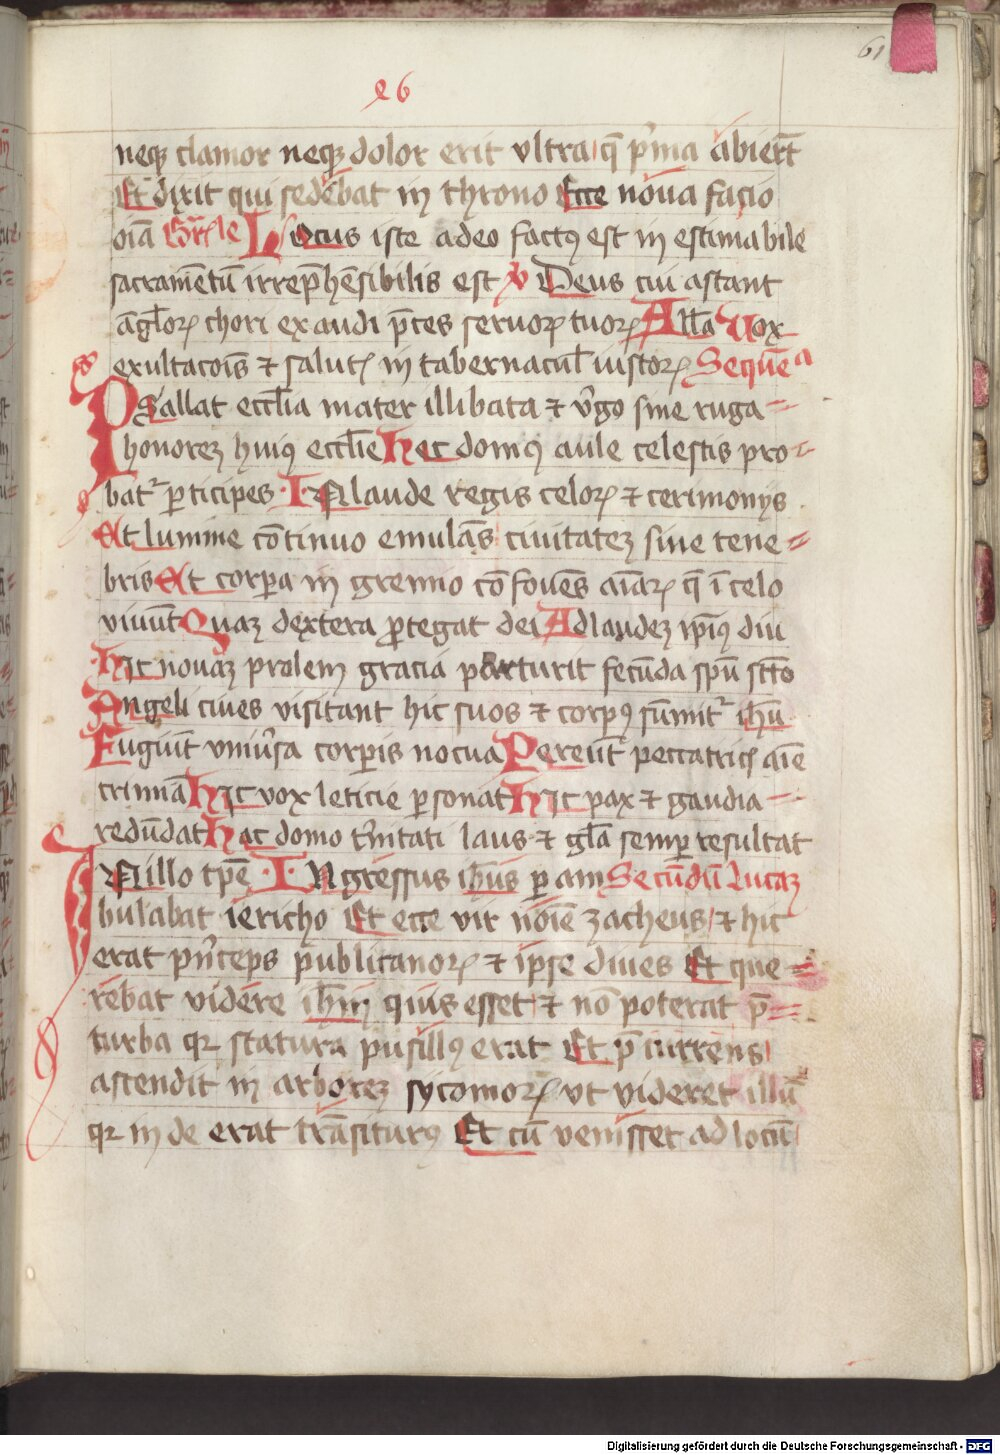 61
26
neq₃ clamor neq₃ dolor erit vltra q̄ p'ma abier̄t
Et dixit qui sedebat in throno Ecce noua facio
oīa Gr̄le Locus iste a deo fact9 est inestimabile
sacramētū irrep̄hēsibilis est v Deus cui astant
āgl̄oꝝ chori exaudi p̄ces seruoꝝ tuoꝝ All̄a Vox
exultacoīs ⁊ salutꝭ in tabernacul̄ iustoꝝ Sequēa
PSallat eccl̄ia mater illibata ⁊ v̓go sine ruga
honoreꝫ hui9 eccl̄ie Hec dom9 aule celestis pro-
bat᷑ ꝑticipes · IN laude regis celoꝝ ⁊ cerimonijs
Et lumine cōtinuo emulās ciuitateꝫ sine tene-
bris Et corꝑa in gremio cōfouēs aīaꝝ q̄ ī celo
viuūt Quaꝫ dextera ꝓtegat dei Ad laudeꝫ ip̄ius diu
Hic nouaꝫ prolem gracia parturit fecūda sp̄u scō
Angeli ciues visitant hic suos ⁊ corp9 sūmit᷑ ih̄u
Fugiūt vniu̓sa corꝑis nocua Pereūt peccatricꝭ aīe
crimīa Hic vox leticie ꝑsonat Hic pax ⁊ gaudia
redūdat Hac domo t̓nitati laus ⁊ gl̄a semꝑ resultat
IN illo tp̄e · INgressus ih̄us ꝑam Secūdū Lucaꝫ
bulabat iericho Et ecce vir noīe zacheus ⁊ hic
erat pn̓ceps publicanoꝝ ⁊ ipse diues Et que-
rebat videre ih̄m quis esset ⁊ nō poterat p̄
turba qꝛ statura pusill9 erat Et p̄currens
ascendit in arboreꝫ sycomoꝝ vt videret illū
qꝛ inde erat trāsitur9 Et cū venisset ad locū
Digitalisierung gefördert durch die Deutsche Forschungsgemeinschaft - DFG